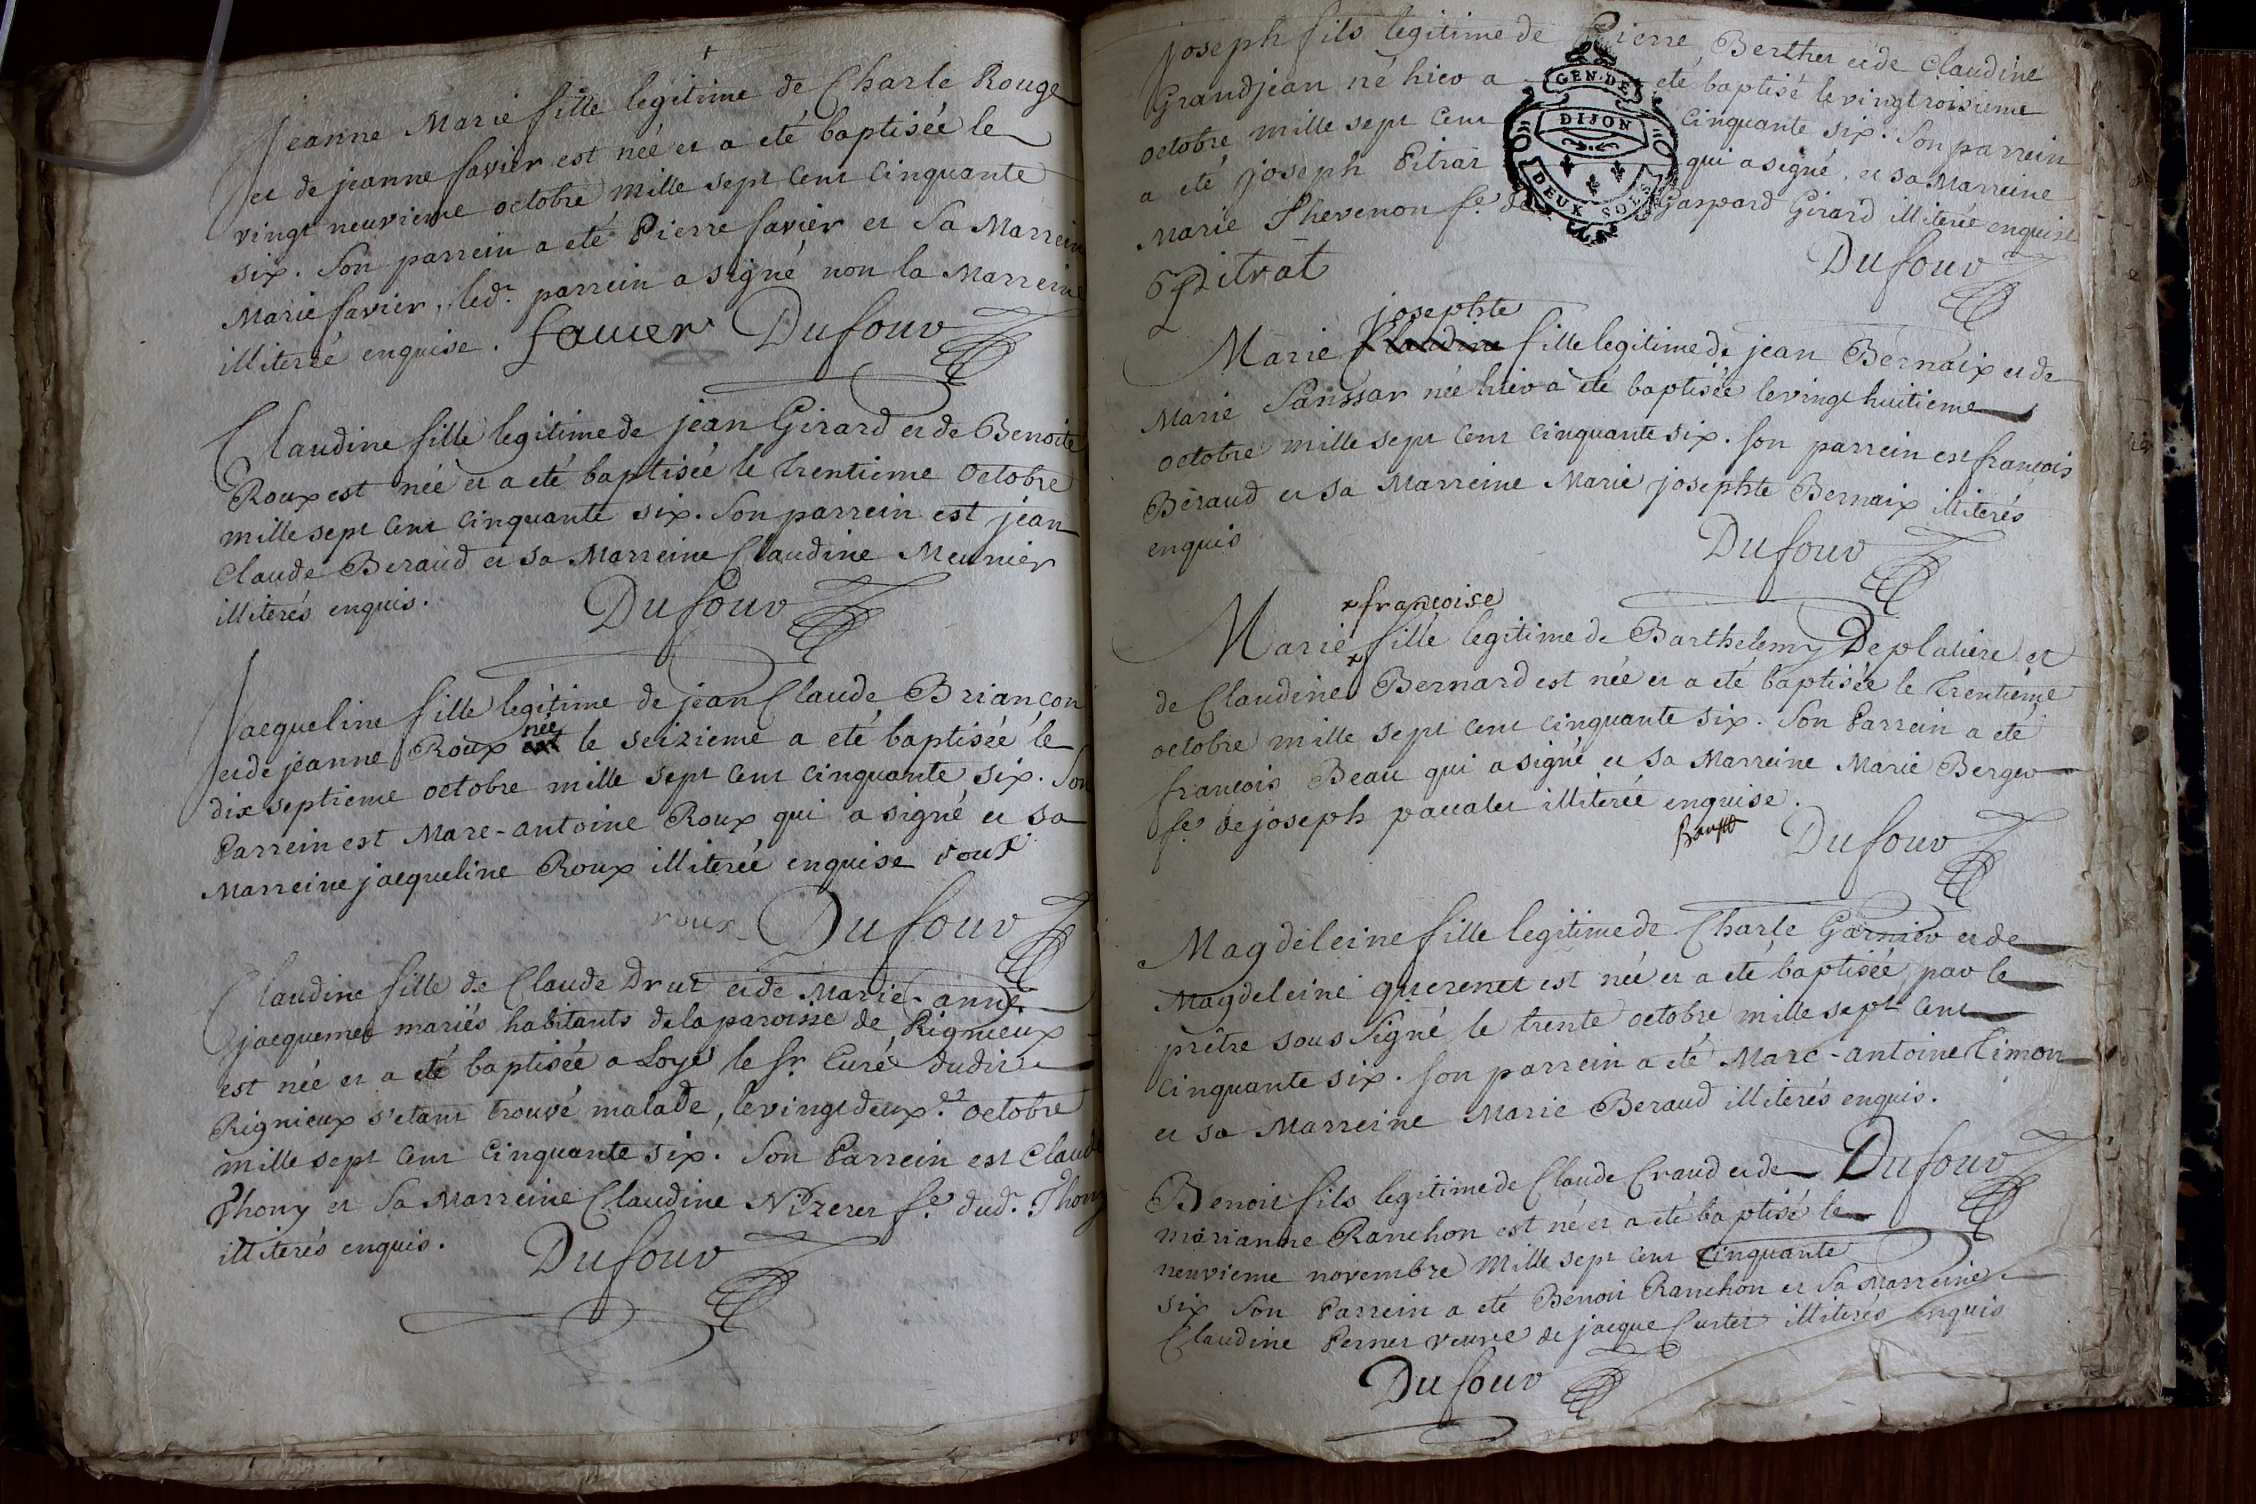 Jeanne Marie fille legitime de Charle Rouge
et de jeanne favier est née et a eté baptisée le
vingt neuvieme octobre mille sept cent cinquante
six. Son parrein a eté Pierre favier et sa Marreine
Marie favier, led.r parrein a signé non la Marreine
illiterée enquise. favier Dufour
Claudine fille legitime de jean Girard et de Benoite
Roux est née et a eté baptisée le trentieme octobre
mille sept cent cinquante six. Son parrein est jean
Claude Beraud et sa Marreine Claudine Meunier
illiterés enquis. Dufour
Jacqueline fille legitime de jean Claude Briançon
et de jeanne Roux née le seizieme a eté baptisée le
dix septieme octobre mille sept cent cinquante six. Son
Parrein est Marc-antoine Roux qui a signé et sa
Marreine jacqueline Roux illiterée enquise roux
roux Dufour
Claudine fille de Claude Drut et de Marie-anne
jacquemet mariés habitants de la paroisse de Rignieux
est née et a eté baptisée a Loye le Sr. Curé dudit
Rignieux s'etant trouvé malade, le vingt deux.e octobre
mille sept cent cinquante six. Son Parrein est Claude
Thony et sa Marreine Claudine Nizeret fe. dud.t Thony
illiterés enquis. Dufour
Joseph fils legitime de Pierre Berthet et de Claudine
Grandjean né hier a eté baptisé le vingtroisieme
octobre mille sept cent cinquante six. Son parrein
a eté joseph Pitrat qui a signé, et sa Marreine
Marie Thevenon fe. de Gaspard Girard illiterée enquise
GEN. DE
DIJON
DEUX SOLS
Pitrat Dufour
josephte
Marie Claudine fille legitime de jean Bernaix et de
Marie Sanssar née hier a eté baptisée le vingt huitieme
octobre mille sept cent cinquante six. Son parrein est francois
Beraud et sa Marreine Marie josephte Bernaix illiterés
enquis Dufour
x francoise
Marie x fille legitime de Barthelemy Deplatiere et
de Claudine Bernard est née et a eté baptisée le trentieme
octobre mille sept cent cinquante six. Son Parrein a eté
francois Beau qui a signé et sa Marreine Marie Berger
fe. de joseph pacalet illiterée enquise.
Dufour
Magdeleine fille legitime de Charle Garnier et de
Magdeleine querenet est née et a eté baptisée par le
prêtre sous signé le trente octobre mille sept cent
cinquante six. Son parrein a eté Marc-antoine Timon
et sa Marreine Marie Beraud illiterés enquis.
Dufour
Benoit fils legitime de Claude Craud et de
marianne Ranchon est né et a eté baptisé le
neuvieme novembre mille sept cent cinquante
six Son Parrein a eté Benoit Ranchon et sa Marreine
Claudine Pernet veuve de jacque Curtet illiterés enquis
Dufour